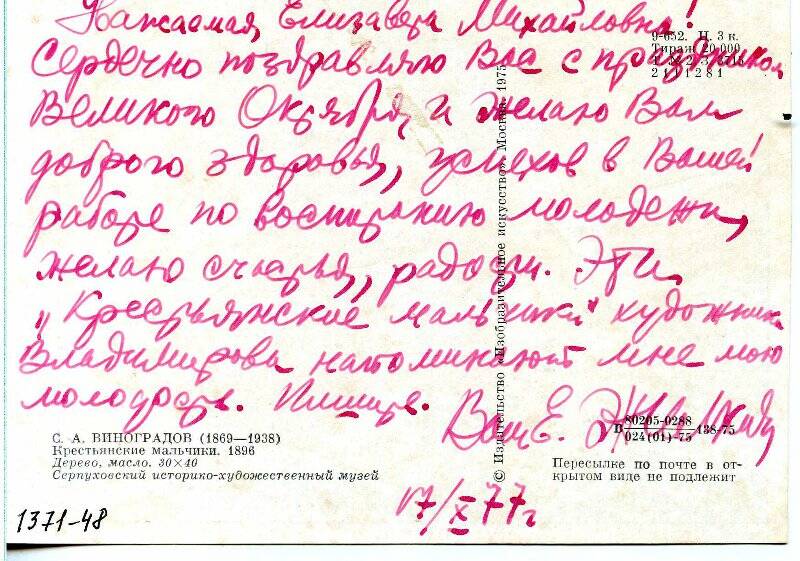 Уважаемая Елизавета Михайловна!
Сердечно поздравляю Вас с праздником
Великого Октября, и желаю Вам
доброго здоровья, успехов в Вашей
работе по воспитанию молодежи,
желаю счастья, радости. Эти
„Крестьянские мальчики" художника
Владимирова напоминают мне мою
молодость. Пишите. Ваш Е.
17/X 77 г
9-652. Ц. 3 к.
Тираж 20 000
2101281
© Издательство «Изобразительное искусство» Москва. 1975
80205-0288
024(01)-75 138-75
С. А. ВИНОГРАДОВ (1869—1938)
Крестьянские мальчики. 1896
Дерево, масло. 30×40
Серпуховский историко-художественный музей
Пересылке по почте в от-
крытом виде не подлежит
1371-48